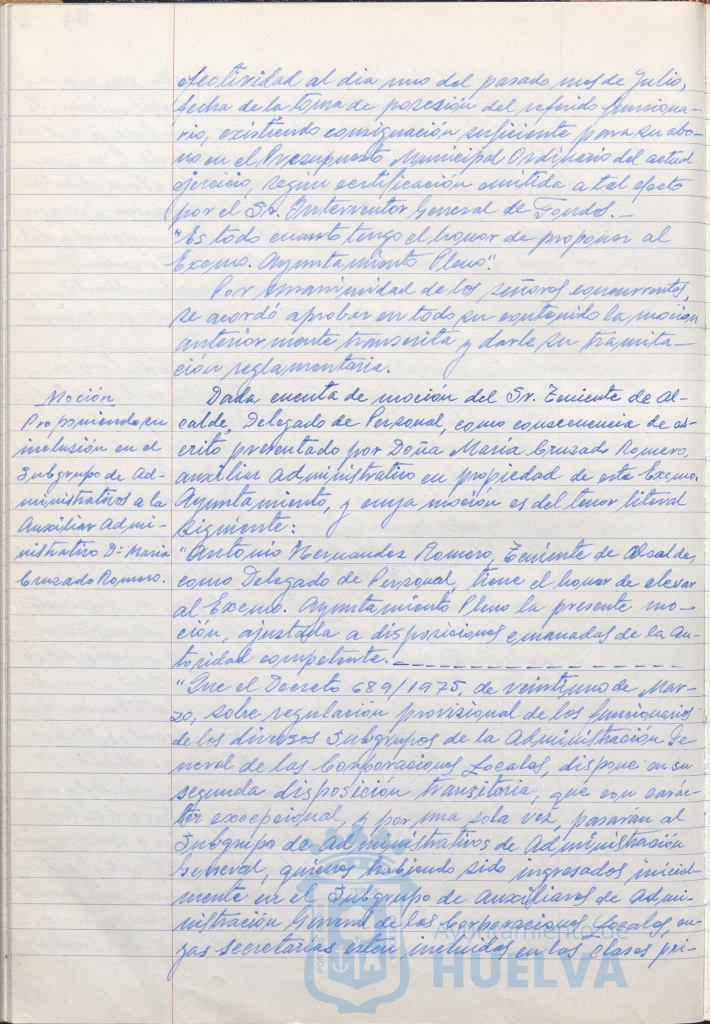 efectividad al dia uno del pasado mes de Julio,
fecha de la toma de posesión del referido funciona-
rio, existiendo consignación suficiente para su abo-
no en el Presupuesto Municipal Ordinario del actual
ejercicio, según certificación emitida a tal efecto
por el Sr. Interventor General de Fondos.-
"Es todo cuanto tengo el honor de proponer al
Excmo. Ayuntamiento Pleno".
Por unanimidad de los señores concurrentes,
se acordó aprobar en todo su contenido la moción
anteriormente transcrita y darle su tramita-
ción reglamentaria.
Moción
Proponiendo su
inclusión en el
Subgrupo de Ad-
ministrativos a la
Auxiliar Admi-
nistrativo Dª Maria
Cruzado Romero.
Dada cuenta de moción del Sr. Teniente de Al-
calde, Delegado de Personal, como consecuencia de es-
crito presentado por Doña María Cruzado Romero,
auxiliar administrativo en propiedad de este Excmo.
Ayuntamiento, y cuya moción es del tenor literal
siguiente:
"Antonio Hernandez Romero, Teniente de Alcalde,
como Delegado de Personal, tiene el honor de elevar
al Excmo. Ayuntamiento Pleno la presente mo-
ción, ajustada a disposiciones emanadas de la Au-
toridad competente.
"Que el Decreto 689/1975, de veintiuno de Mar-
zo, sobre regulación provisional de los funcionarios
de los diversos Subgrupos de la Administración Ge-
neral de las Corporaciones Locales, dispone en su
segunda disposición transitoria, que con carác-
ter excepcional, y por una sola vez, pasarán al
Subgrupo de Administrativos de Administración
General, quienes habiendo sido ingresados inicial-
mente en el Subgrupo de Auxiliares de Admi-
nistración General de las Corporaciones Locales, cu-
yas secretarías estén incluidos en las clases pri-
Ayuntamiento de
HUELVA